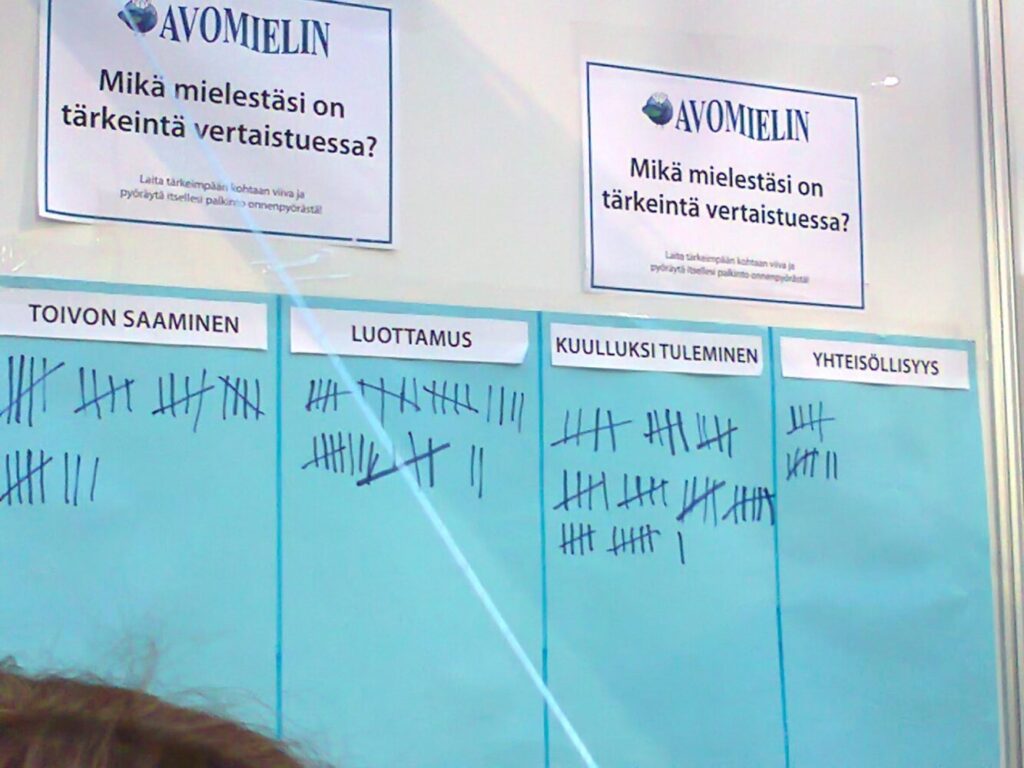 AVOMIELIN
Mikä mielestäsi on
tärkeintä vertaistuessa?
Laita tärkeimpään kohtaan viiva ja
pyöräytä itsellesi palkinto onnenpyörästä!
AVOMIELIN
Mikä mielestäsi on
tärkeintä vertaistuessa?
Laita tärkeimpään kohtaan viiva ja
pyöräytä itsellesi palkinto onnenpyörästä!
TOIVON SAAMINEN
LUOTTAMUS
KUULLUKSI TULEMINEN
YHTEISÖLLISYYS